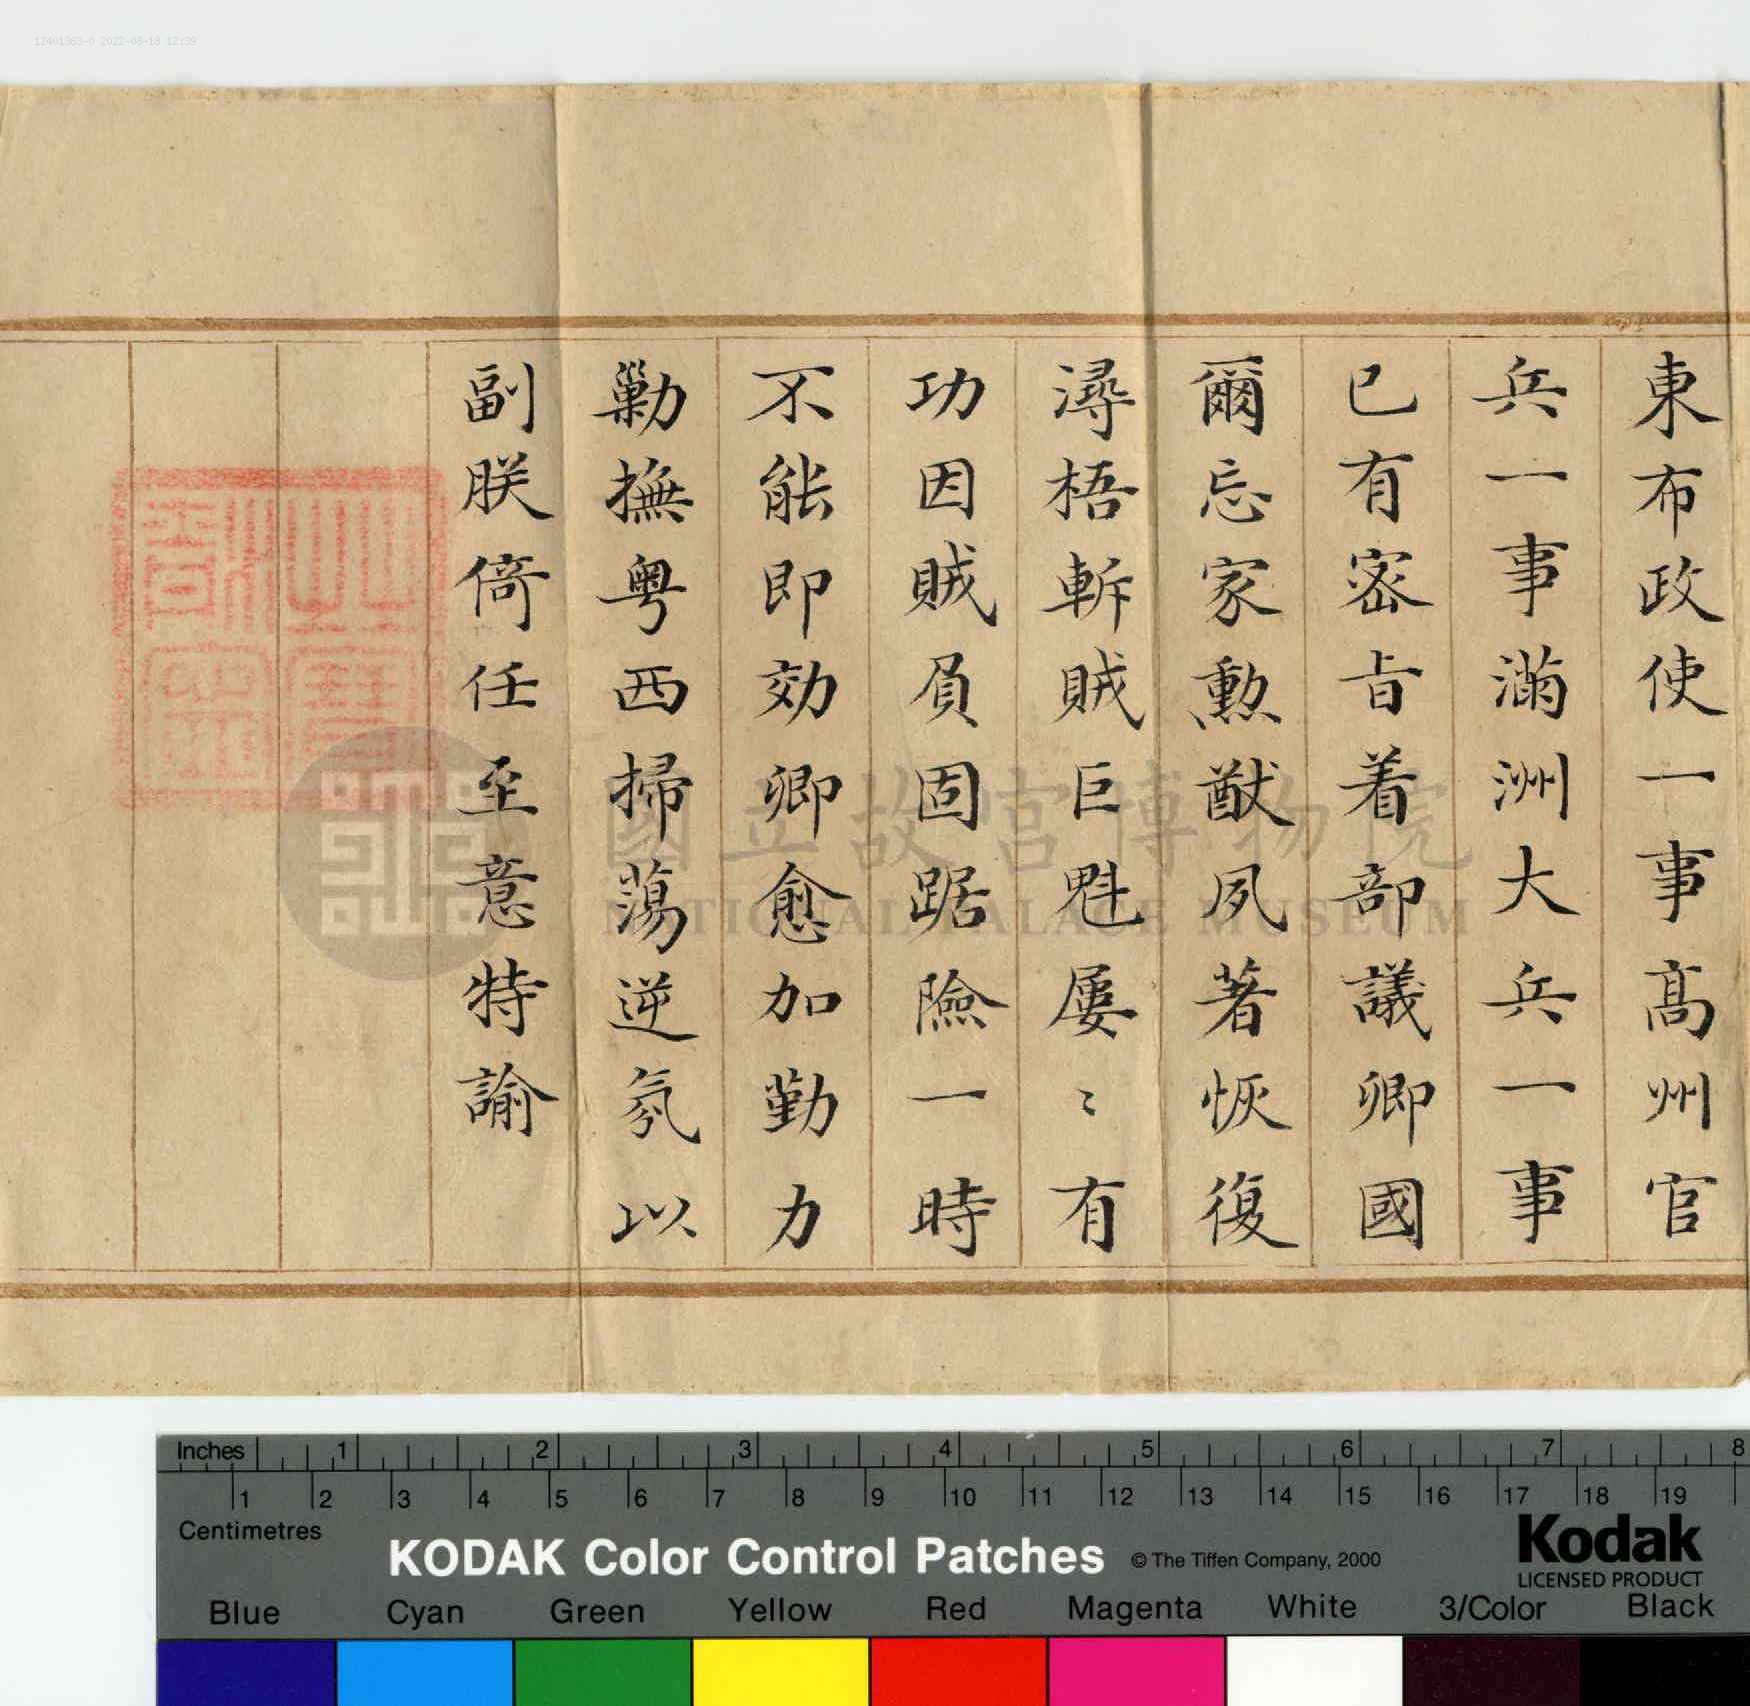 12401363-0 2022-08-18 12:39
東布政使一事高州官
兵一事滿洲大兵一事
已有密旨着部議卿國
爾忘家勲猷夙著恢復
潯梧斬賊巨魁屢〻有
功因賊負固踞險一時
不能即効卿愈加勤力
勦撫粤西掃蕩逆氛以
副朕倚任至意特諭
國立故宮博物院
NATIONAL PALACE MUSEUM
Inches 1 2 3 4 5 6 7 8
1 2 3 4 5 6 7 8 9 10 11 12 13 14 15 16 17 18 19
Centimetres
KODAK Color Control Patches © The Tiffen Company, 2000 Kodak
LICENSED PRODUCT
Blue Cyan Green Yellow Red Magenta White 3/Color Black